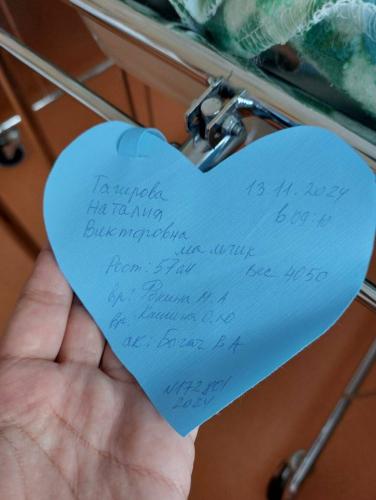 Тагирова 13.11.2024
Наталия в 09:10
Викторовна
мальчик
Рост: 57 см вес 4050
вр: Рекина Н.А
вр. Кашина О.Ю
ак: Богач В А
N172801
2024